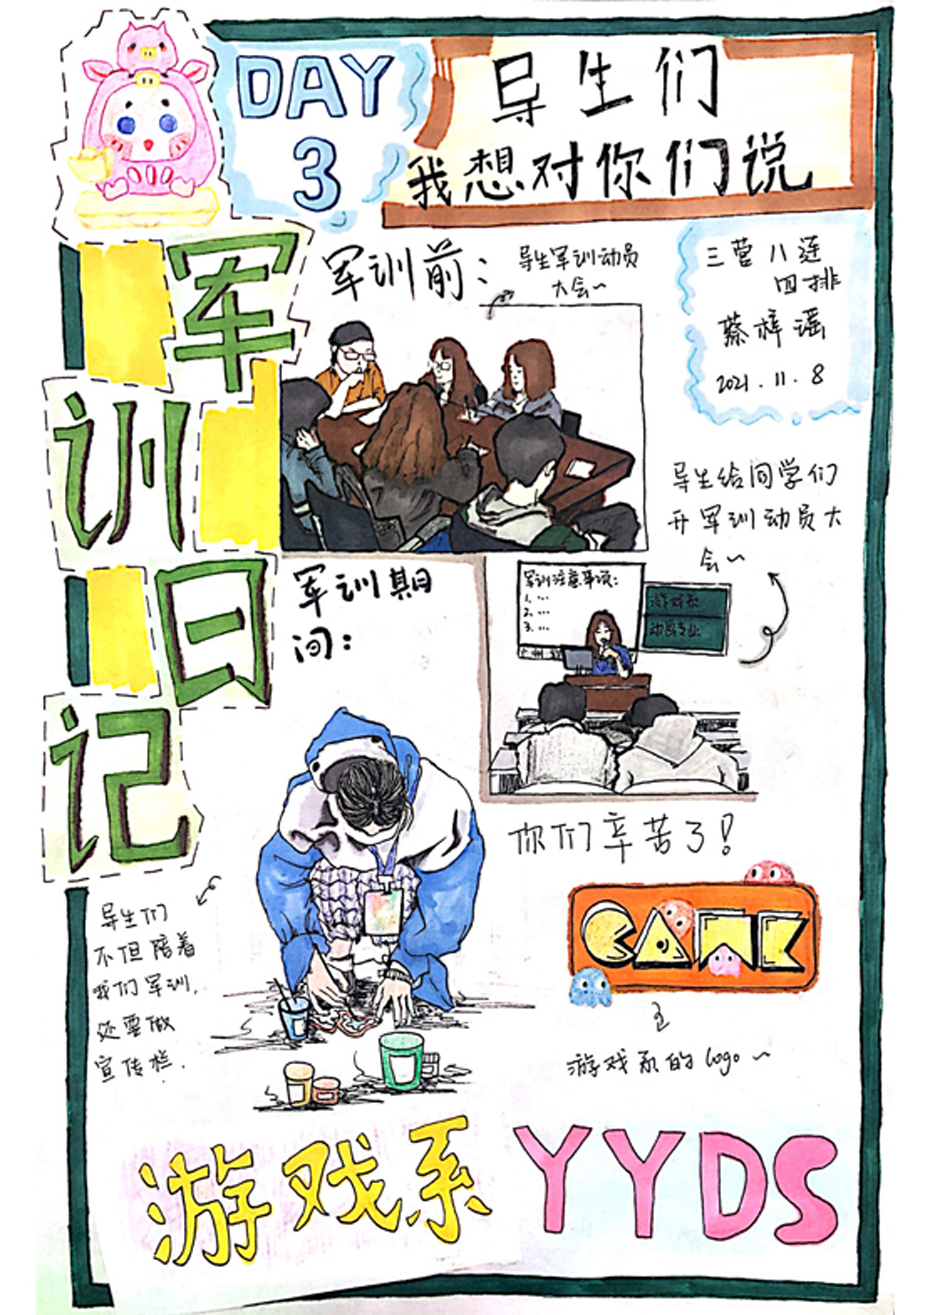 DAY
3
导生们
我想对你们说
军训日记
军训前：
导生军训动员
大会~
三营八连
四排
蔡梓谣
2021.11.8
导生给同学们
开军训动员大
会~
军训期
间：
军训注意事项：
1. ...
2. ...
3. ...
游戏系
动画专业
你们辛苦了！
导生们
不但陪着
我们军训，
还要做
宣传栏.
GAME
游戏系的logo~
游戏系YYDS